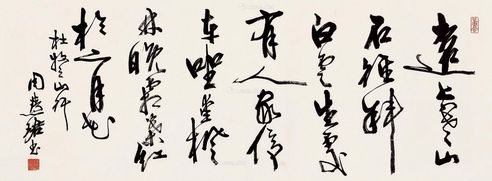 遠上寒山
石徑斜
白雲生處
有人家停
車坐愛楓
林晚霜葉紅
於二月花
杜牧山行
周慧珺書